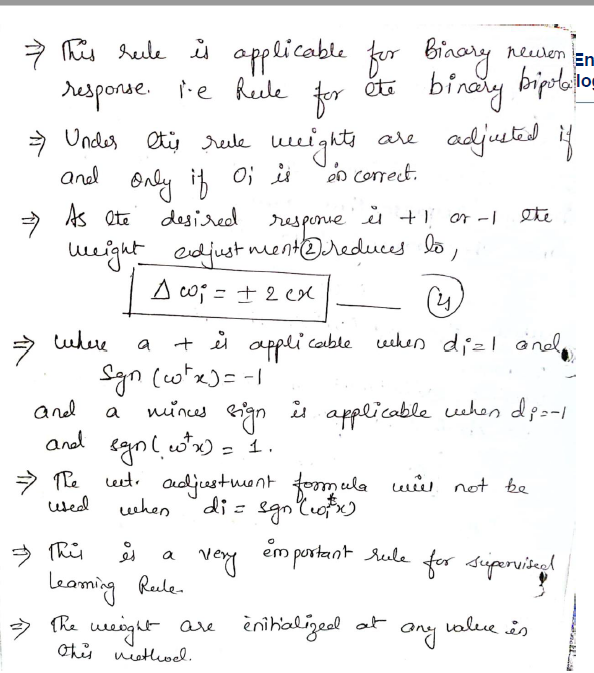 ⇒ This rule is applicable for Binary neuron
response. i.e Rule for the binary bipola
⇒ Under this rule weights are adjusted if
and only if Oi is incorrect.
⇒ As the desired response is +1 or -1 the
weight adjustment ② reduces to,
Δωi = ± 2cx —— (4)
⇒ where a + is applicable when di=1 and
Sgn (ωᵗx) = -1
and a minus sign is applicable when di=-1
and sgn(ωᵗx) = 1.
⇒ The wt. adjustment formula will not be
used when di = sgn(ωiᵗx)
⇒ This is a very important rule for supervised
Learning Rule.
⇒ The weight are initialized at any value in
this method.
En
log